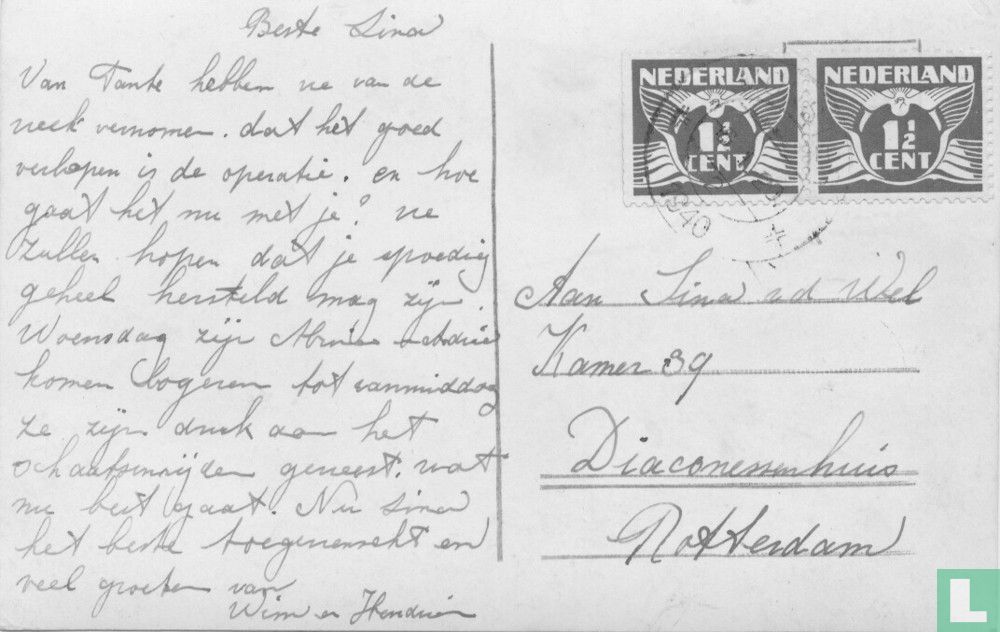 Beste Lina
Van Tante hebben we van de
week vernomen. dat het goed
verlopen is de operatie. en hoe
gaat het nu met je? we
zullen hopen dat je spoedig
geheel hersteld mag zijn.
Woensdag zijn
komen logeren tot vanmiddag
ze zijn druk aan het
schaatsenrijden geweest. wat
nu best gaat. Nu Lina
het beste toegewenscht en
veel groeten van
Wim en
NEDERLAND
1½
CENT
NEDERLAND
1½
CENT
1940
Aan Lina v d Wel
Kamer 39
Diaconessenhuis
Rotterdam
L